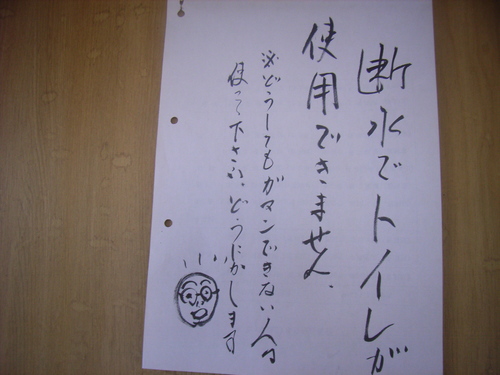 断水でトイレが
使用できません.
※どうしてもガマンできない人は
使って下さい、どうにかします